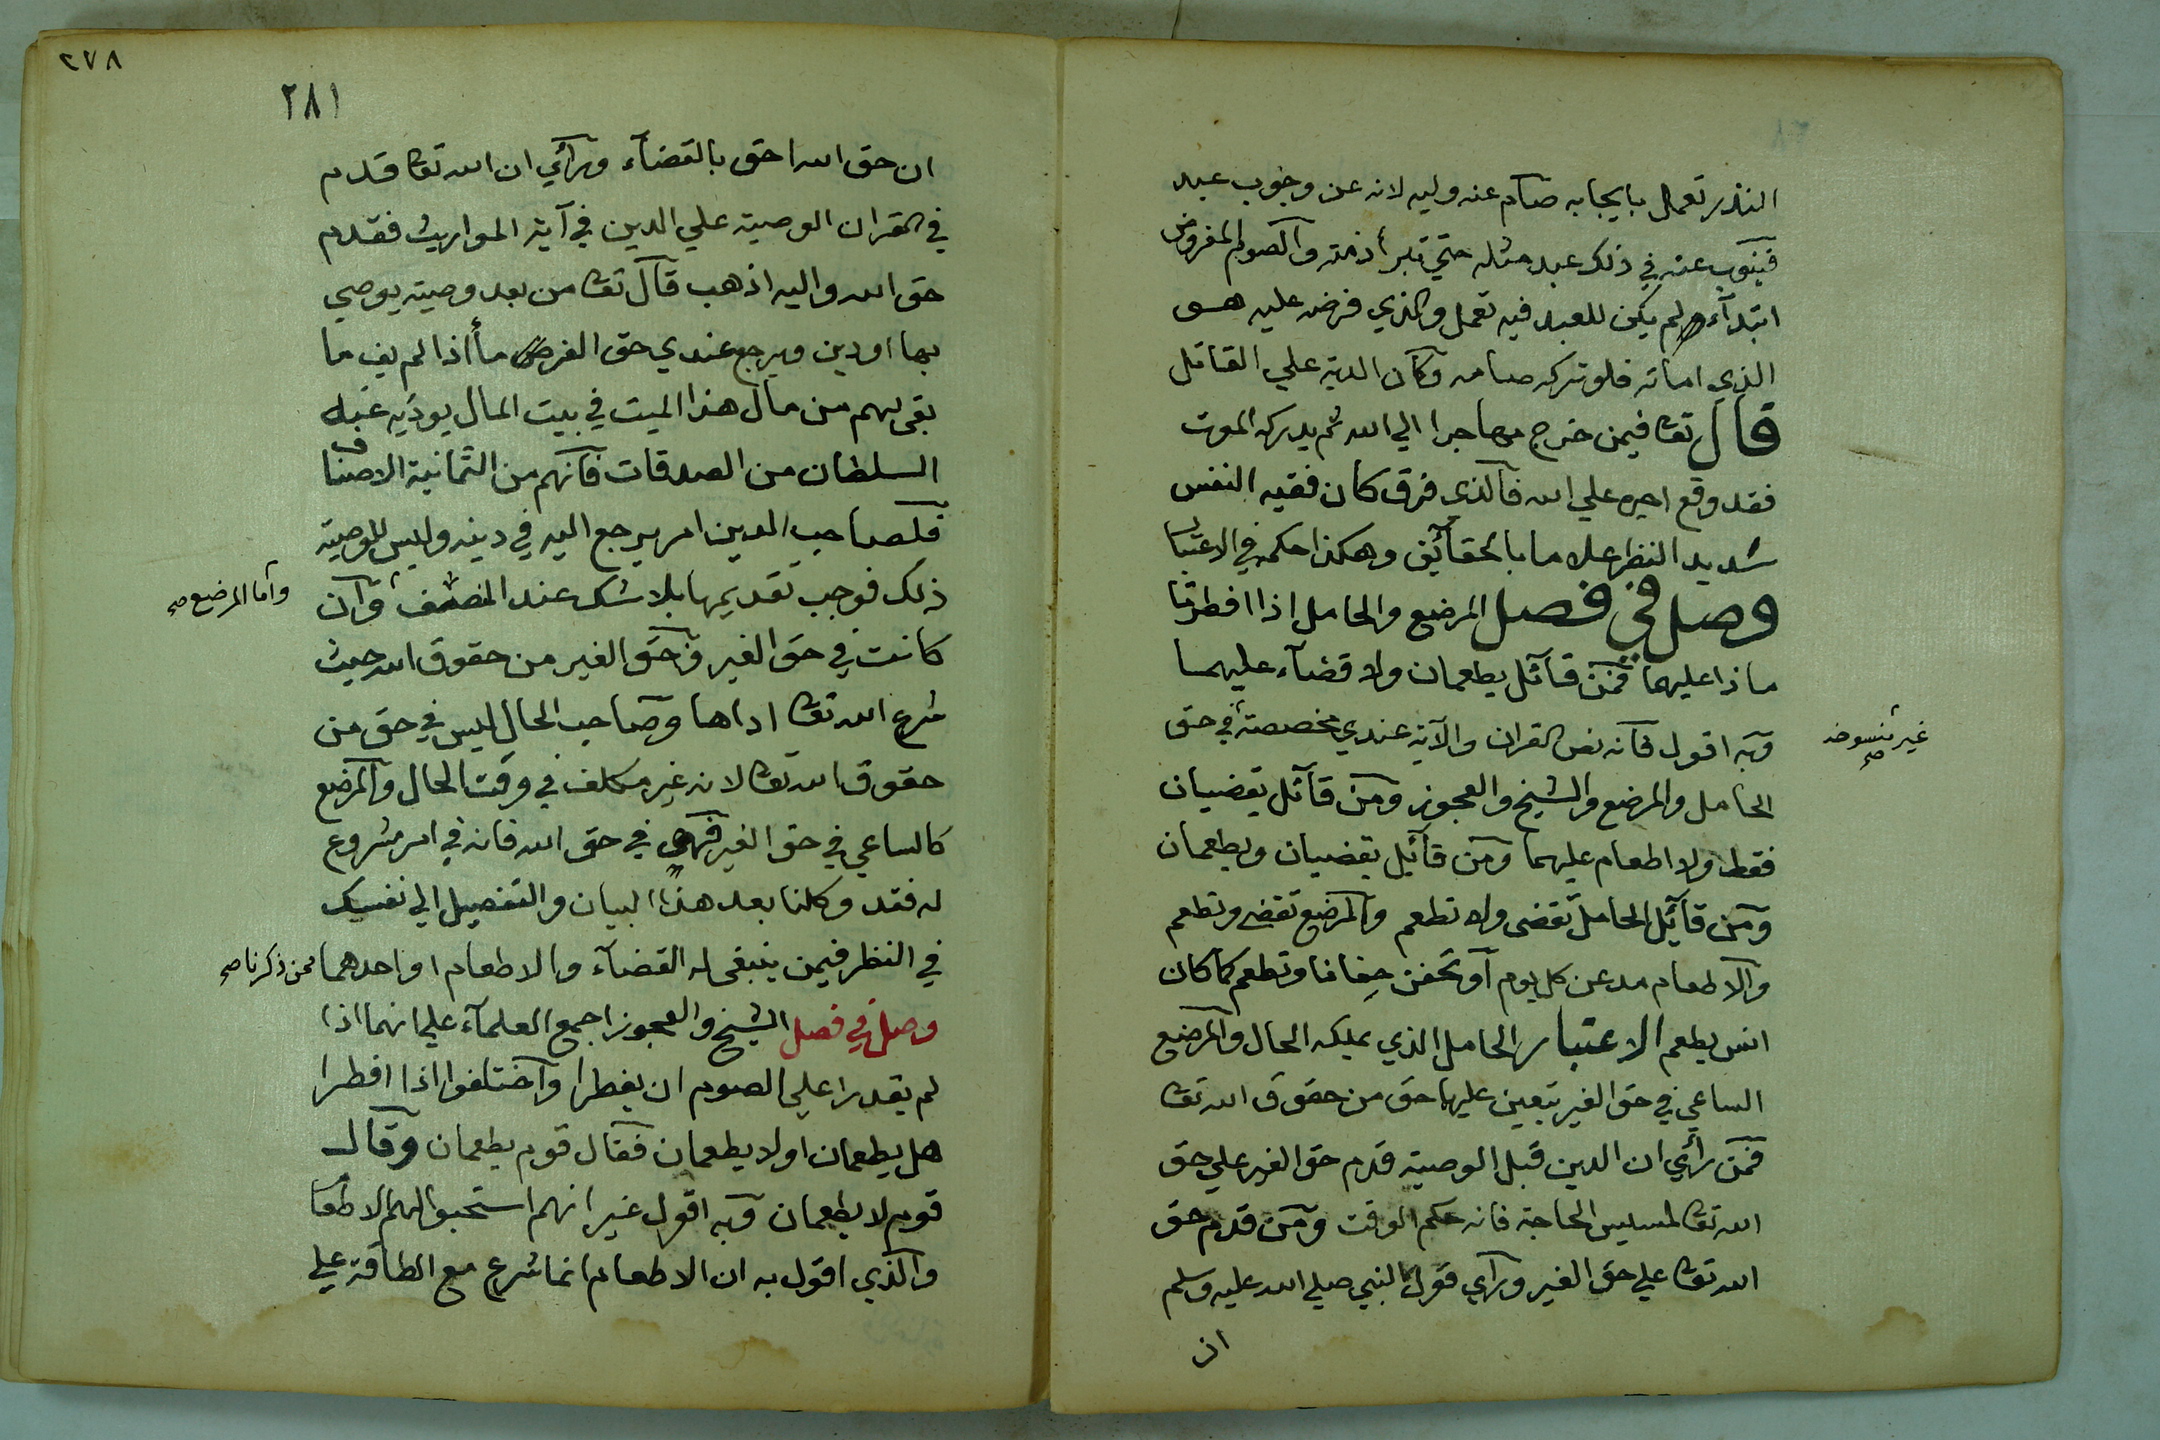 النذر تعمل بايجابه صآم عنه وليه لانه عن وجوب عبد
فينوب عنه في ذلك عبد مثله حتي تبرأ ذمته والصوم المفروض
ابتدآء لم يكن للعبد فيه تعمل والذي فرضه عليه هو
الذي اماته فلو تركه صامه وكان الدية علي القاتل
قال تعا فيمن خرج مهاجرا الي الله ثم يدركه الموت
فقد وقع اجره علي الله فالذي فرق كان فقيه النفس
شديد النظر علاما بالحقآئق وهكذا حكمه في الاعتبار
وصل في فصل المرضع والحامل اذا افطرتا
ماذا عليهما فمن قآئل يطعمان ولا قضآء عليهما
وبه اقول فانه نص القران والآية عندي مخصصة في حق
غير منسوخه صح
الحامل والمرضع والشيخ والعجوز ومن قآئل يقضيان
فقط ولا اطعام عليهما ومن قآئل يقضيان ويطعمان
ومن قآئل الحامل تقضى ولا تطعم والمرضع تقضي وتطعم
والاطعام مد عن كل يوم او تحفن حفانا وتطعم كما كان
انس يطعم الاعتبار الحامل الذي يملكه الحال والمرضع
الساعي في حق الغير يتعين عليها حق من حقوق الله تعا
فمن رأي ان الدين قبل الوصية قدم حق الغير علي حق
الله تعا لمسيس الحاجة فانه حكم الوقت ومن قدم حق
الله تعا علي حق الغير وراي قول النبي صلي الله عليه وسلم
ان
٢٧٨
٢٨١
ان حق الله احق بالقضآء ورأي ان الله تعا قدم
في القران الوصية علي الدين في آية المواريث فقدم
حق الله واليه اذهب قال تعا من بعد وصية يوصي
بها او دين ويرجع عندي حق الغرمآ اذا لم يف ما
بقى لهم من مال هذا الميت في بيت المال يوديه عنه
السلطان من الصدقات فانهم من الثمانية الاصناف
فلصاحب الدين امر يرجع اليه في دينه وليس للوصية
ذلك فوجب تقديمها بلا شك عند المنصف وان
وأما المرضع صح
كانت في حق الغير فحق الغير من حقوق الله حيث
شرع الله تعا اداها وصاحب الحال ليس في حق من
حقوق الله تعا لانه غير مكلف في وقت الحال والمرضع
كالساعي في حق الغير فهو في حق الله فانه في امر مشروع
له فقد وكلنا بعد هذا البيان والتفصيل الي نفسك
في النظر فيمن ينبغى له القضآء والاطعام او احدهما ممن ذكرنا صح
وصل في فصل الشيخ والعجوز اجمع العلمآء علي انهما اذا
لم يقدرا علي الصوم ان يفطرا واختلفوا اذا افطرا
هل يطعمان او لا يطعمان فقال قوم يطعمان وقال
قوم لا يطعمان وبه اقول غير انهم استحبوا لهم الاطعام
والذي اقول به ان الاطعام انما شرع مع الطاقة علي